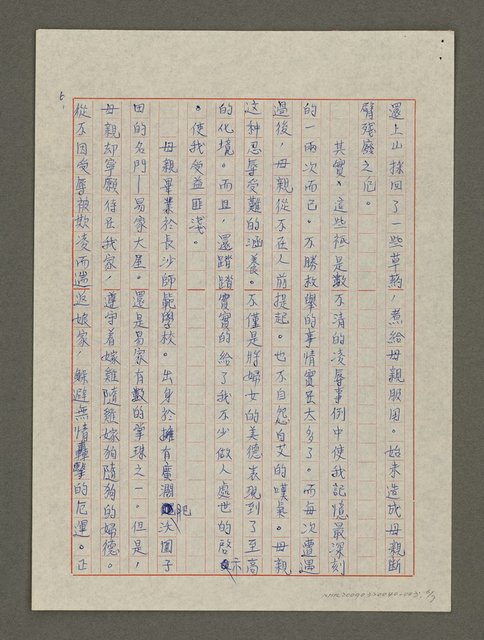 還上山採回了一些草药,煮給母親服用。始未造成母親斷
臂殘廢之危。
其實、這些祇是數不清的凌辱事例中使我記憶最深刻
的一兩次而已。不勝救舉的事情實在太多了。而每次遭遇
過後,母親從不在人前提起。也不自怨自艾的嘆氣。母親
这种忍辱受難的涵養。不僅是將婦女的美德表現到了至高
的化境。而且,還踏踏實實的給了我不少做人處世的啓示
。使我受益匪淺。
母親畢業於長沙師範學校。出身於擁有廣濶肥沃園子
田的名門—易家大屋。還是易家有數的掌珠之一。但是,
母親却寧願待在我家,遵守着嫁雞隨雞嫁狗隨狗的婦德。
從不因受辱被欺凌而逃返娘家,躲避無情的厄運。正
6.